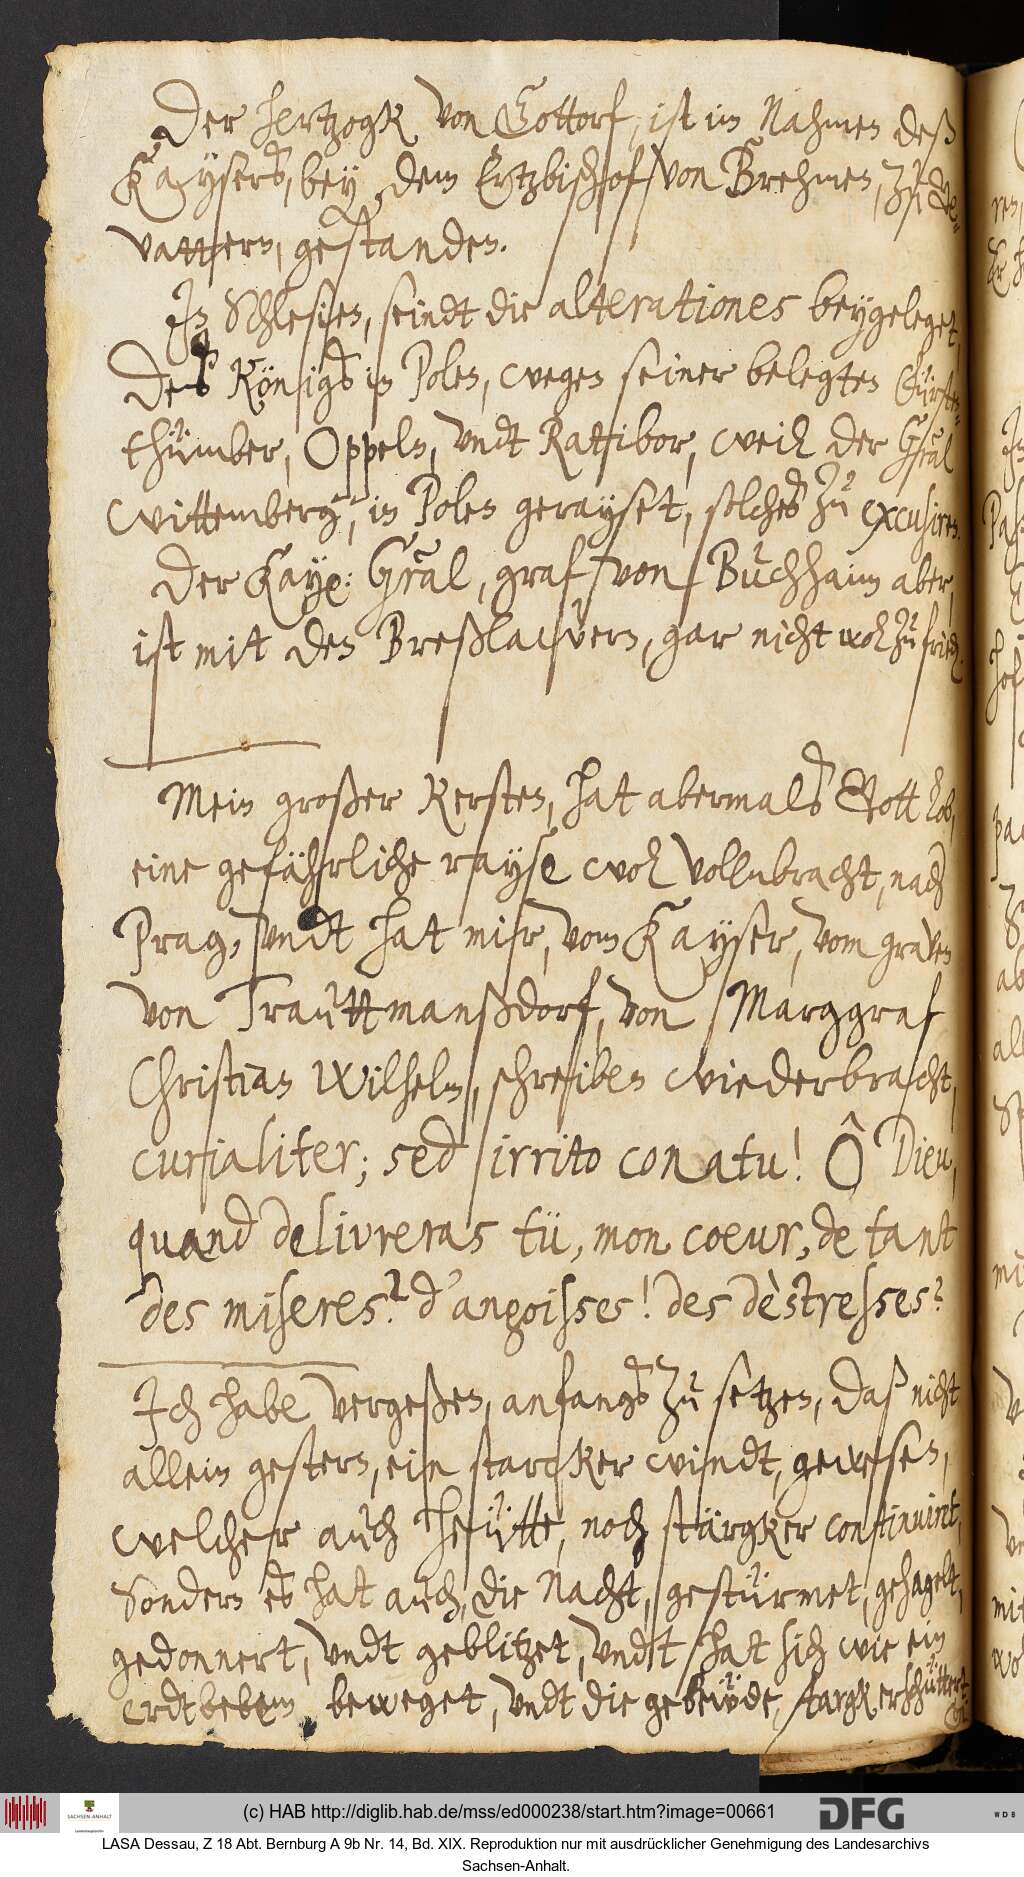 Der Hertzogk von Gottorf, ist im Nahmen deß
Kaysers, bey dem Ertzbischof von Brehmen, zu Ge-
vattern, gestanden.
In Schlesien, seindt die alterationes beygeleget,
des Königs in Polen, wegen seiner belegten Fürsten-
thümber, Oppeln, vndt Rattibor, weil der G͞ral
Wittemberg, in Polen gerayset, solches zu excusiren.
Der Kay: G͞ral, graf von Buchhaim aber,
ist mit den Breßlawern, gar nicht wol zu fried.
Mein großer Kersten, hat abermals Gott lob,
eine gefährliche rayse wol vollnbracht, nach
Prag, vndt hat mir, vom Kayser, vom graven
von Trauttmanßdorf, von Marggraf
Christian Wilhelm, schreiben wiederbracht,
curialiter; sed irrito conatu! Ô Dieu,
quand delivreras tü, mon coeur, de tant
des miseres? d'angoisses! des dèstresses?
Ich habe vergeßen, anfangs zu setzen, daß nicht
allein gestern, ein starcker windt, gewesen,
welcher auch heütte, noch stärgker continuiret,
Sondern es hat auch, die Nacht, gestürmet, gehagelt,
gedonnert, vndt geblitzet, vndt hat sich wie ein
erdtbeben beweget, vndt die gebeüde, stargk erschüttert,
(c) HAB http://diglib.hab.de/mss/ed000238/start.htm?image=00661
SACHSEN-ANHALT
DFG
WDB
LASA Dessau, Z 18 Abt. Bernburg A 9b Nr. 14, Bd. XIX. Reproduktion nur mit ausdrücklicher Genehmigung des Landesarchivs
Sachsen-Anhalt.